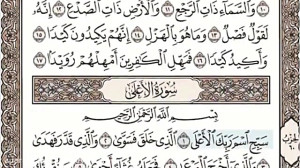 وَالسَّمَاءِ ذَاتِ الرَّجْعِ ١١ وَالْأَرْضِ ذَاتِ الصَّدْعِ ١٢ إِنَّهُ
لَقَوْلٌ فَصْلٌ ١٣ وَمَا هُوَ بِالْهَزْلِ ١٤ إِنَّهُمْ يَكِيدُونَ كَيْدًا ١٥
وَأَكِيدُ كَيْدًا ١٦ فَمَهِّلِ الْكَافِرِينَ أَمْهِلْهُمْ رُوَيْدًا ١٧
سُورَةُ الْأَعْلَى
بِسْمِ اللَّهِ الرَّحْمَٰنِ الرَّحِيمِ
سَبِّحِ اسْمَ رَبِّكَ الْأَعْلَى ١ الَّذِي خَلَقَ فَسَوَّىٰ ٢ وَالَّذِي قَدَّرَ فَهَدَىٰ